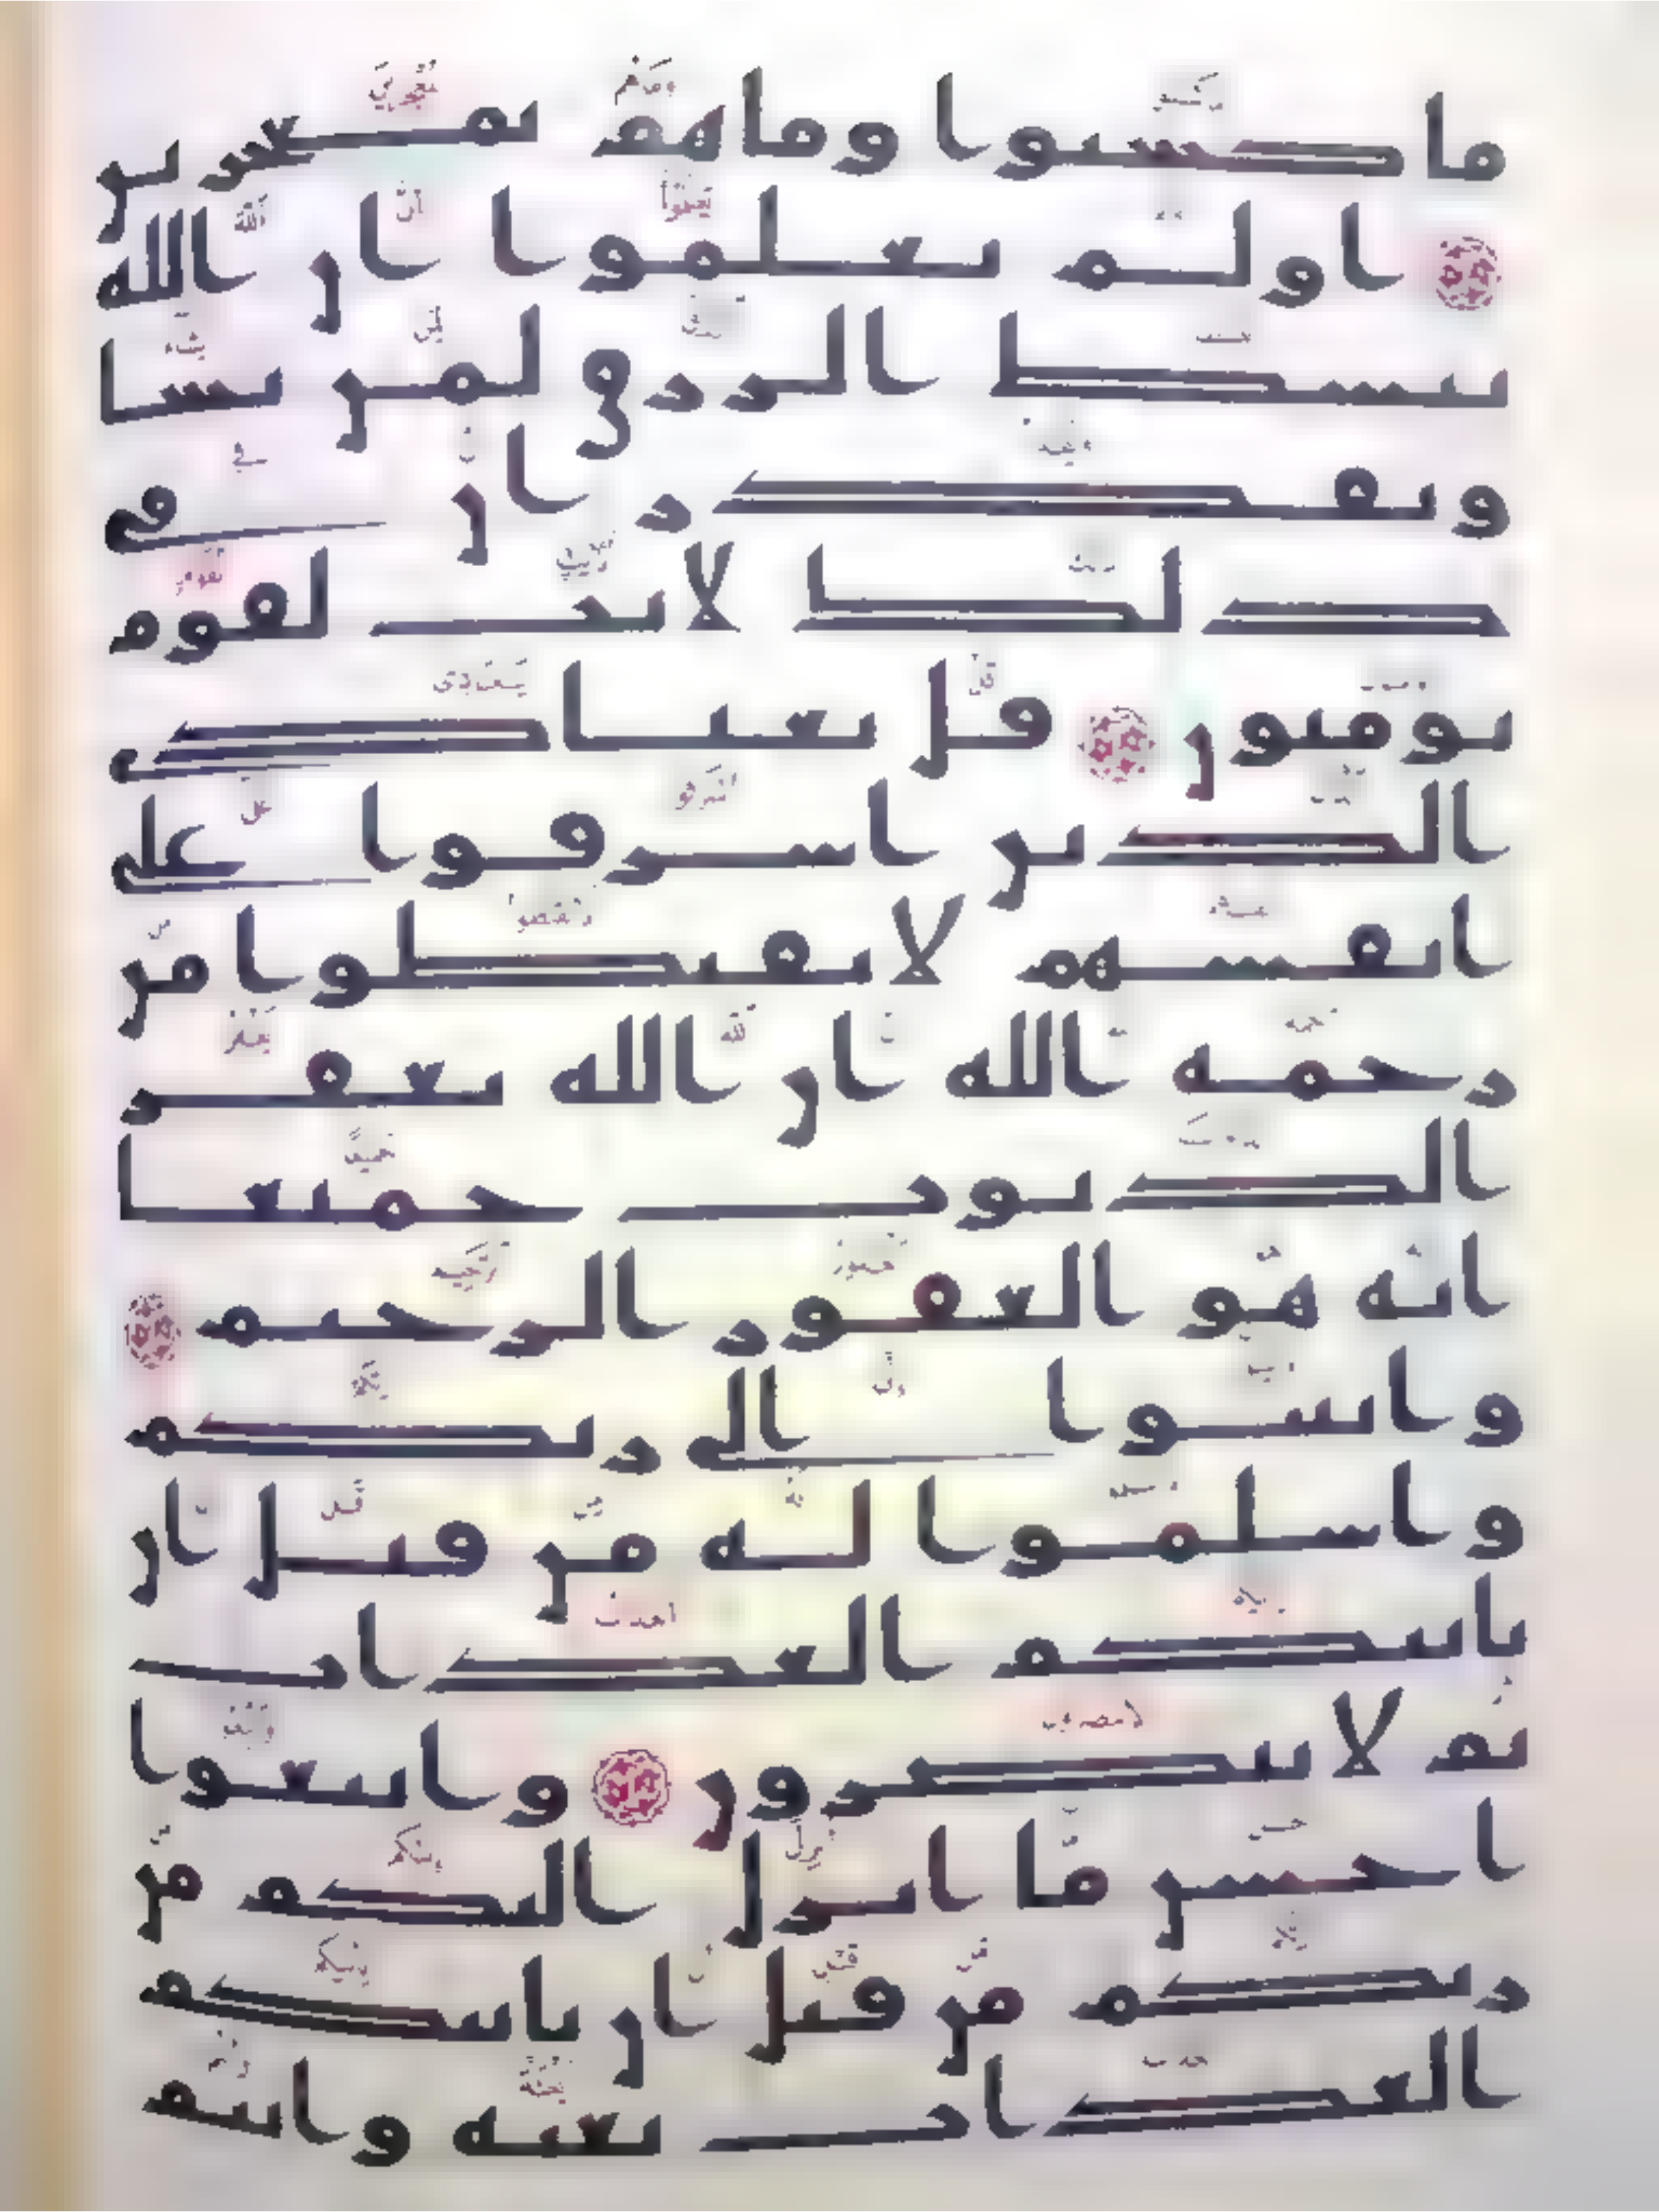 ما كسبوا وما هم بمعجزين
اولم يعلموا ان الله
يبسط الرزق لمن يشا
ويقدر ان في
ذلك لايت لقوم
يومنون قل يعبادي
الذين اسرفوا على
انفسهم لا تقنطوا من
رحمه الله ان الله يغفر
الذنوب جميعا
انه هو الغفور الرحيم
وانيبوا الى ربكم
واسلموا له من قبل ان
ياتيكم العذاب
ثم لا تنصرون واتبعوا
احسن ما انزل اليكم من
ربكم من قبل ان ياتيكم
العذاب بغته وانتم